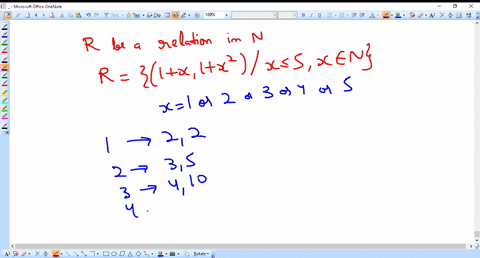 Microsoft Office OneNote
R be a relation in N
R = {(1+x, 1+x²) / x ≤ 5, x ∈ N}
x = 1 or 2 or 3 or 4 or 5
1 → 2, 2
2 → 3, 5
3 → 4, 10
4